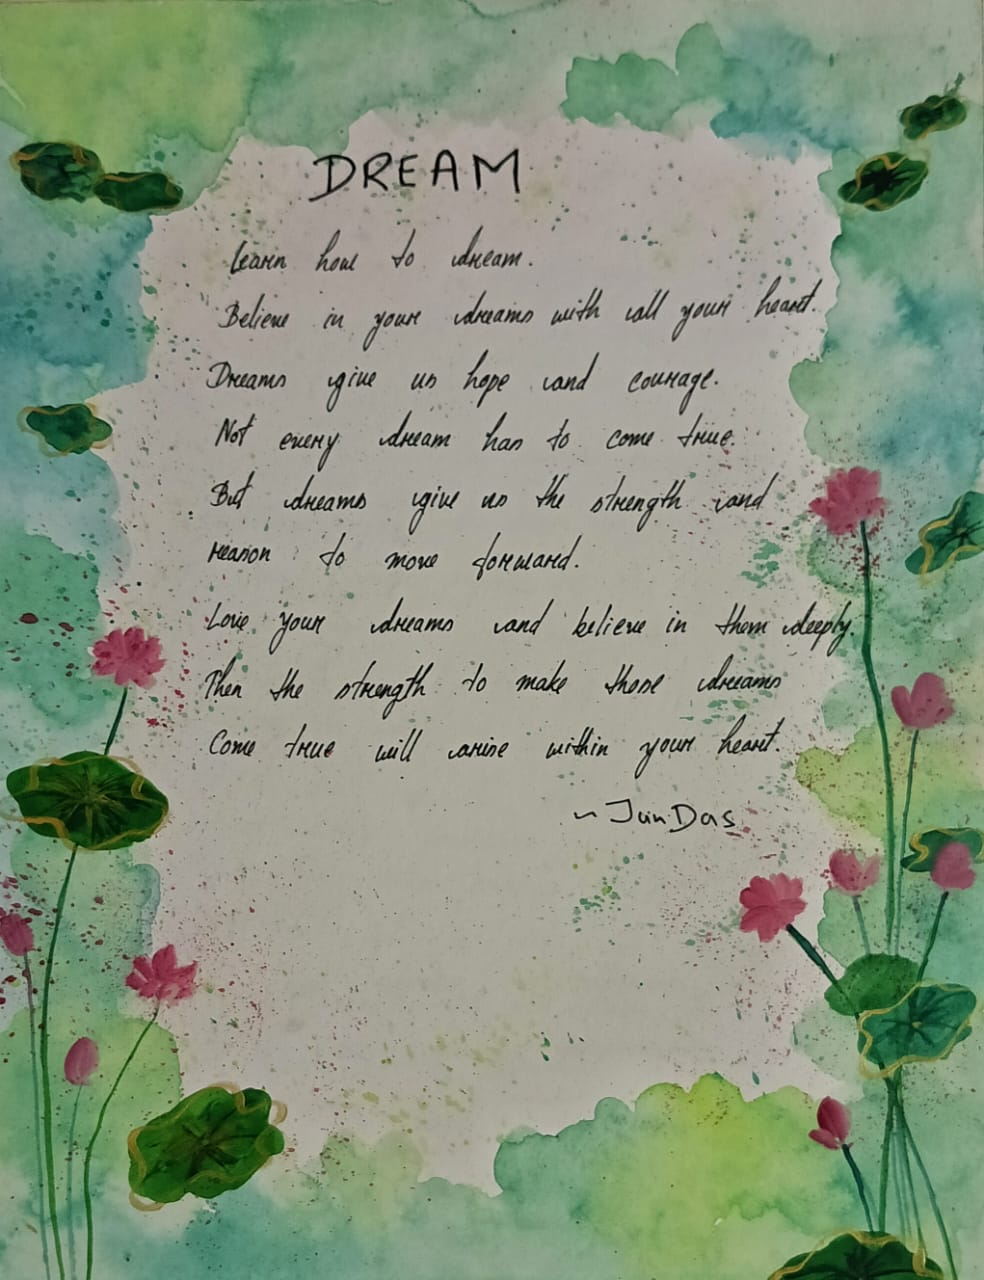 DREAM
Learn how to dream.
Believe in your dreams with all your heart.
Dreams give us hope and courage.
Not every dream has to come true.
But dreams give us the strength and
reason to move forward.
Love your dreams and believe in them deeply.
Then the strength to make those dreams
Come true will arise within your heart.
~ Jun Das